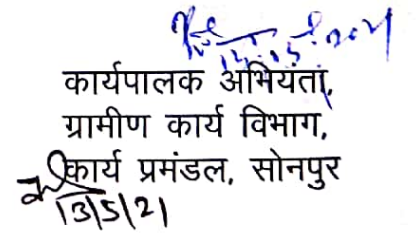 14.5.2021
कार्यपालक अभियंता,
ग्रामीण कार्य विभाग,
कार्य प्रमंडल, सोनपुर
13/5/21